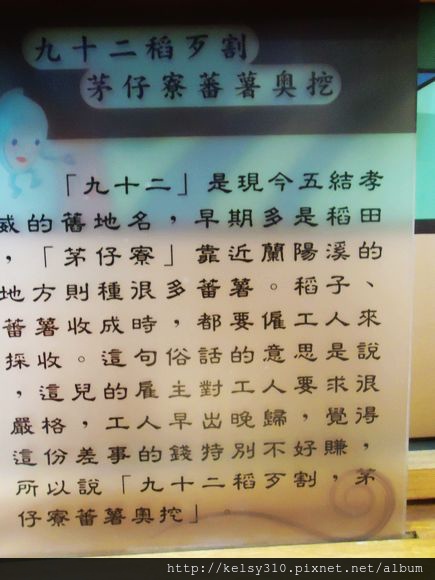 九十二稻歹割
茅仔寮蕃薯奧挖
「九十二」是現今五結孝
威的舊地名，早期多是稻田
，「茅仔寮」靠近蘭陽溪的
地方則種很多蕃薯。稻子、
蕃薯收成時，都要僱工人來
採收。這句俗話的意思是說
，這兒的雇主對工人要求很
嚴格，工人早出晚歸，覺得
這份差事的錢特別不好賺，
所以說「九十二稻歹割，茅
仔寮蕃薯奧挖」。
http://kelsy310.pixnet.net/album